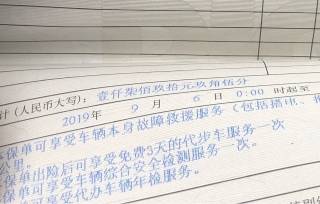 计（人民币大写）：壹仟柒佰玖拾元玖角伍分
2019年 9 月 6 日 0:00 时起至
保单可享受车辆本身故障救援服务（包括
公里。
保单出险后可享受免费3天的代步车服务一次
保单可享受车辆综合安全检测服务一次。
可享受代办车辆年检服务。